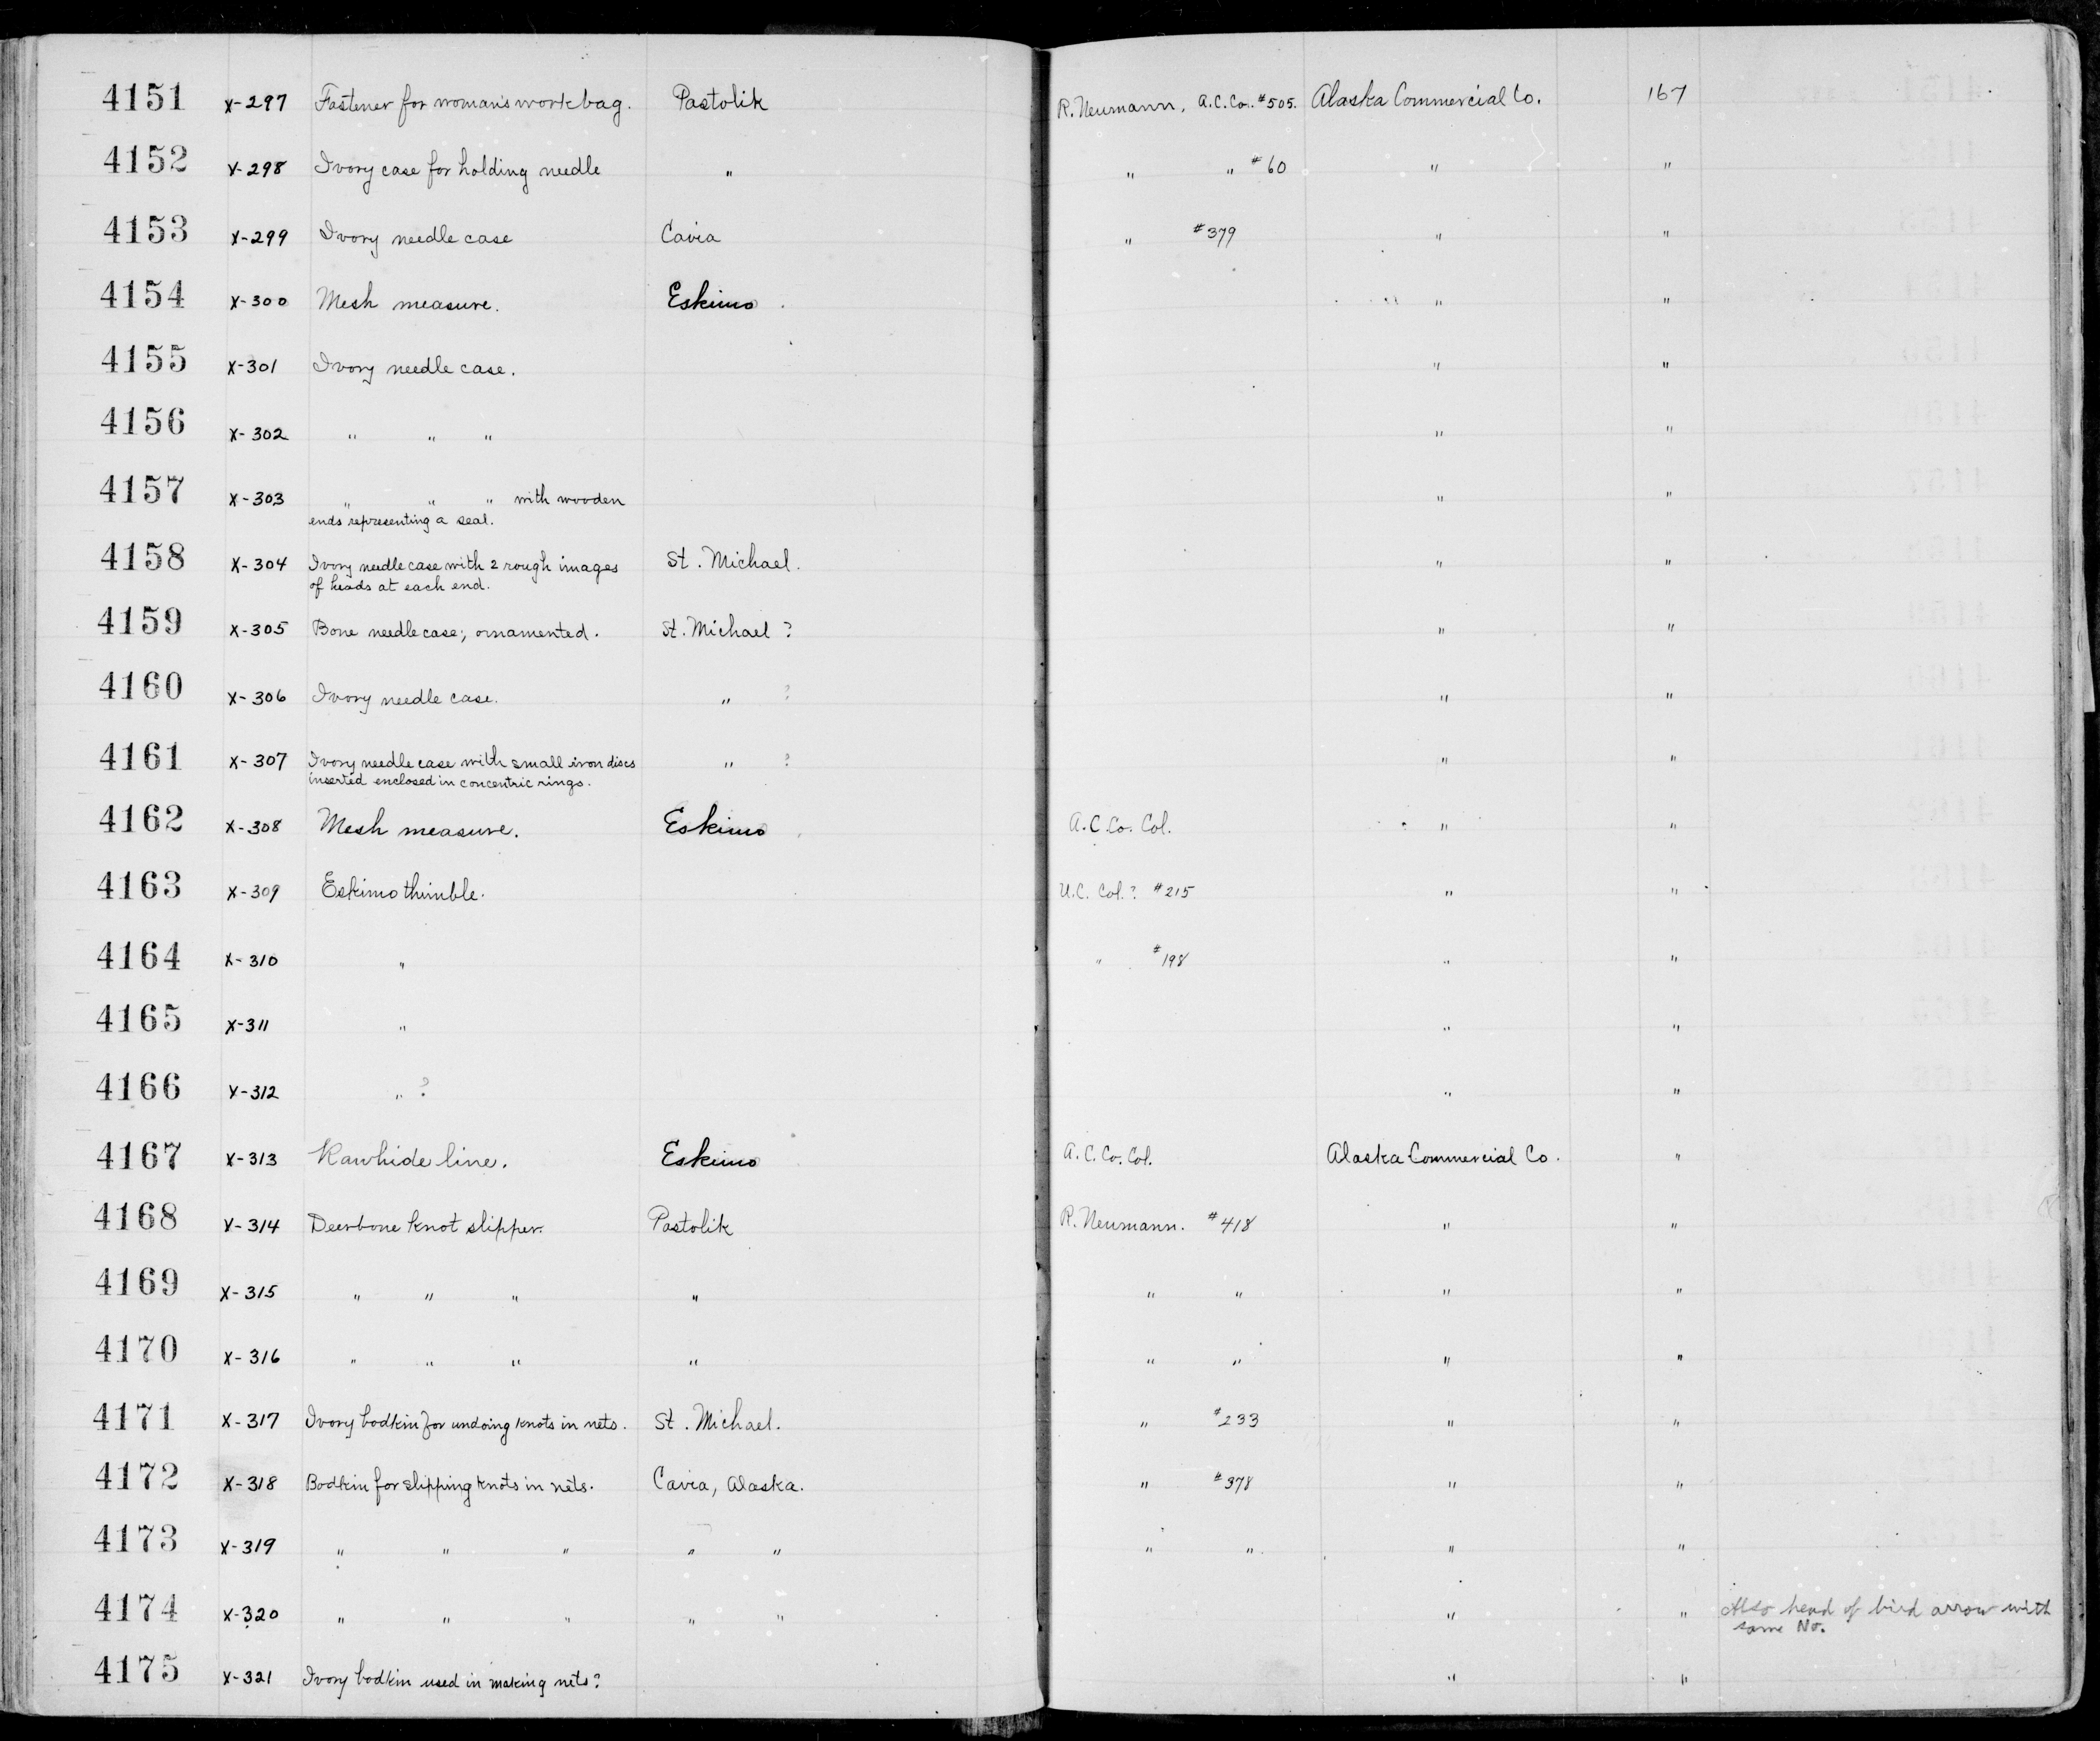 4151 X-297 Fastener for woman's workbag. Pastolik R. Neumann. A.C.Co. #505. Alaska Commercial Co. 167
4152 X-298 Ivory case for holding needle " " " #60 " "
4153 X-299 Ivory needle case Cavia " #379 " "
4154 X-300 Mesh measure. Eskimo " "
4155 X-301 Ivory needle case. " "
4156 X-302 " " " " "
4157 X-303 " " " with wooden " "
ends representing a seal.
4158 X-304 Ivory needle case with 2 rough images St. Michael. " "
of heads at each end.
4159 X-305 Bone needle case; ornamented. St. Michael ? " "
4160 X-306 Ivory needle case. " ? " "
4161 X-307 Ivory needle case with small iron discs " ? " "
inserted enclosed in concentric rings.
4162 X-308 Mesh measure. Eskimo A.C.Co. Col. " "
4163 X-309 Eskimo thimble. U.C. Col.? #215 " "
4164 X-310 " " #198 " "
4165 X-311 " " "
4166 X-312 " ? " "
4167 X-313 Rawhide line. Eskimo A.C.Co. Col. Alaska Commercial Co. "
4168 X-314 Deerbone knot slipper. Pastolik R. Neumann. #418 " "
4169 X-315 " " " " " " " "
4170 X-316 " " " " " " " "
4171 X-317 Ivory bodkin for undoing knots in nets. St. Michael. " #233 " "
4172 X-318 Bodkin for slipping knots in nets. Cavia, Alaska. " #378 " "
4173 X-319 " " " " " " " " "
4174 X-320 " " " " " " " Also head of bird arrow with
same No.
4175 X-321 Ivory bodkin used in making nets? " "